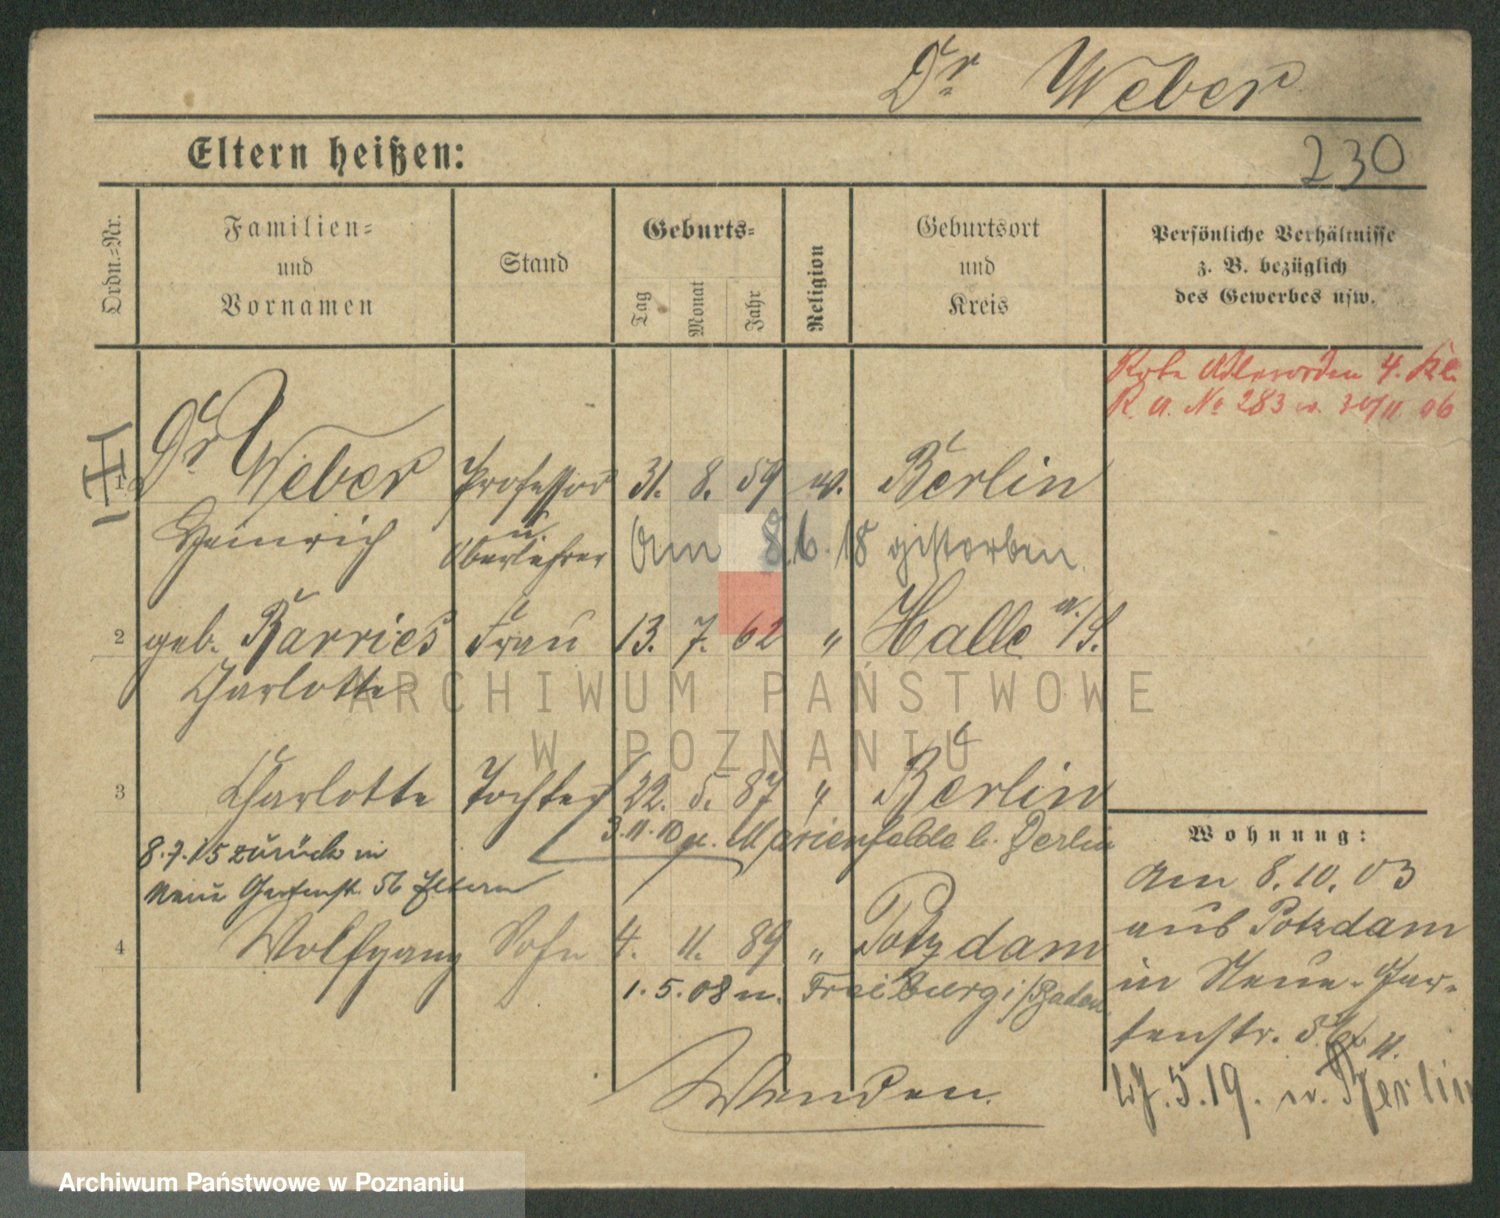 Dr Weber
Eltern heißen:
230
Ordn.=Nr.
Familien=
und
Vornamen
Stand
Geburts=
Tag
Monat
Jahr
Religion
Geburtsort
und
Kreis
Persönliche Verhältnisse
z. B. bezüglich
des Gewerbes usw.
Rote Adlerorden 4. Kl.
K. A. No 283 v. 30/11. 06
1 Dr Weber Professor 31. 8. 59 ev. Berlin
Heinrich u. Oberlehrer
Am 8.6.18 gestorben
2 geb. Barries Frau 13. 7. 62 " Halle a./S.
Charlotte
ARCHIWUM PAŃSTWOWE
W POZNANIU
3 Charlotte Tochter 22. 5. 87 " Berlin
3.11.10 n. Marienfelde b. Berlin
8.7.15 zurück in
Neue Gartenst. 56 Eltern
4 Wolfgang Sohn 4. 11. 89 " Potzdam
1.5.08 n. Freiburg i/Baden
Wenden.
Wohnung:
Am 8.10.03
aus Potzdam
in Neue-Gar-
tenstr. 56
5.19. n. Berlin
Archiwum Państwowe w Poznaniu